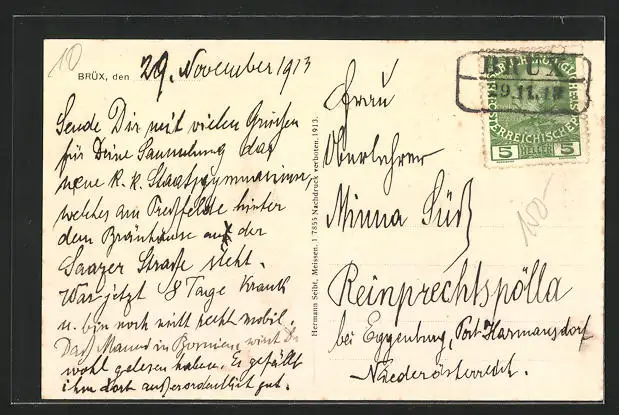 10
BRÜX, den 29. November 1913
Sende Dir mit vielen Grüßen
für Deine Sammlung das
neue k. k. Staatsgymnasium,
welches am Treßfelde hinter
dem Bräuhause auf der
Saazer Straße steht.
War jetzt 8 Tage krank
u. bin noch nicht recht mobil.
Daß Mama in Bornien wirst Du
wohl gelesen haben. Es gefällt
ihm dort außerordentlich gut.
Hermann Seibt, Meissen. 1 7855 Nachdruck verboten. 1913.
BRÜX
9.11.13
5 HELLER 5
Frau
Oberlehrer
Minna Süß
150-
Reinprechtspölla
bei Eggenburg, Post Harmansdorf
Niederösterreich.